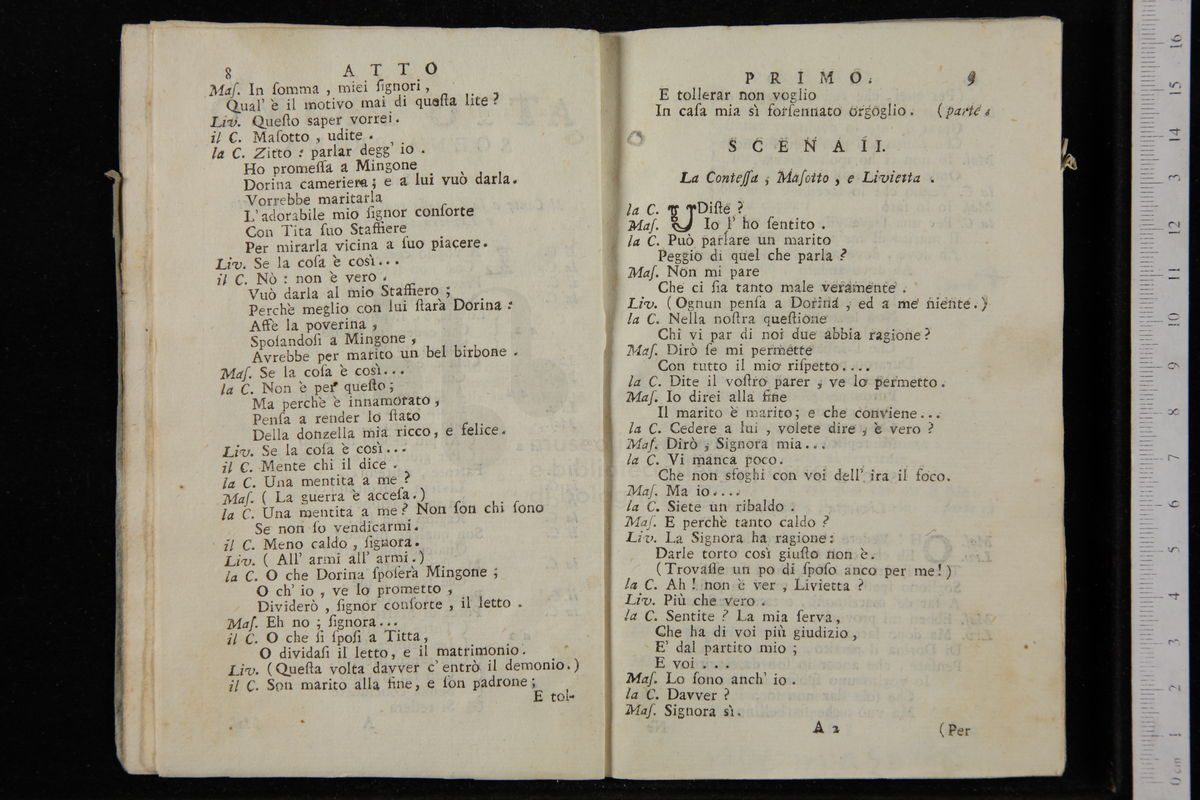 8 ATTO
Maſ. In ſomma , miei ſignori ,
Qual' è il motivo mai di queſta lite ?
Liv. Queſto saper vorrei .
il C. Maſotto , udite .
la C. Zitto : parlar degg' io .
Ho promeſſa a Mingone
Dorina cameriera ; e a lui vuò darla .
Vorrebbe maritarla
L' adorabile mio ſignor conſorte
Con Tita ſuo Staffiere
Per mirarla vicina a ſuo piacere .
Liv. Se la coſa è così . . .
il C. Nò : non è vero .
Vuò darla al mio Staffiero ;
Perchè meglio con lui ſtarà Dorina :
Affè la poverina ,
Spoſandoſi a Mingone ,
Avrebbe per marito un bel birbone .
Maſ. Se la coſa è così . . .
la C. Non è per queſto ;
Ma perchè è innamorato ,
Penſa a render lo ſtato
Della donzella mia ricco , e felice .
Liv. Se la coſa è così . . .
il C. Mente chi il dice .
la C. Una mentita a me ?
Maſ. ( La guerra è acceſa . )
la C. Una mentita a me ? Non ſon chi ſono
Se non ſo vendicarmi .
il C. Meno caldo , ſignora .
Liv. ( All' armi all' armi . )
la C. O che Dorina ſpoſerà Mingone ;
O ch' io , ve lo prometto ,
Dividerò , ſignor conſorte , il letto .
Maſ. Eh no ; ſignora . . .
il C. O che ſi ſpoſi a Titta ,
O dividaſi il letto , e il matrimonio .
Liv. ( Queſta volta davver c' entrò il demonio . )
il C. Son marito alla fine , e ſon padrone ;
E tol-
PRIMO. 9
E tollerar non voglio
In caſa mia sì forſennato orgoglio . ( parte .
SCENA II.
La Conteſſa , Maſotto , e Livietta .
la C. UDiſte ?
Maſ. Io l' ho ſentito .
la C. Può parlare un marito
Peggio di quel che parla ?
Maſ. Non mi pare
Che ci ſia tanto male veramente .
Liv. ( Ognun penſa a Dorina , ed a me niente . )
la C. Nella noſtra queſtione
Chi vi par di noi due abbia ragione ?
Maſ. Dirò ſe mi permette
Con tutto il mio riſpetto . . . .
la C. Dite il voſtro parer , ve lo permetto .
Maſ. Io direi alla fine
Il marito è marito ; e che conviene . . .
la C. Cedere a lui , volete dire , è vero ?
Maſ. Dirò , Signora mia . . .
la C. Vi manca poco .
Che non sfoghi con voi dell' ira il foco .
Maſ. Ma io . . . .
la C. Siete un ribaldo .
Maſ. E perchè tanto caldo ?
Liv. La Signora ha ragione :
Darle torto così giuſto non è .
( Trovaſſe un po di ſpoſo anco per me ! )
la C. Ah ! non è ver , Livietta ?
Liv. Più che vero .
la C. Sentite ? La mia ſerva ,
Che ha di voi più giudizio ,
E' dal partito mio ;
E voi . . .
Maſ. Lo ſono anch' io .
la C. Davver ?
Maſ. Signora sì .
A 2 (Per